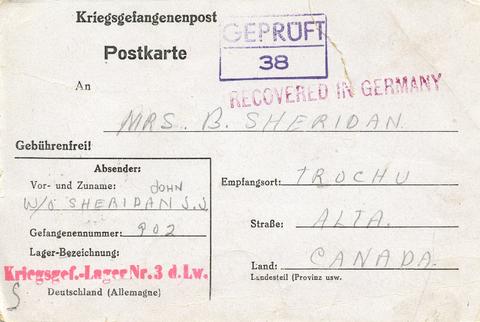 Kriegsgefangenenpost
Postkarte
GEPRÜFT
38
RECOVERED IN GERMANY
An
MRS. B. SHERIDAN.
Gebührenfrei!
Absender:
Vor- und Zuname: JOHN
W/O SHERIDAN J.J.
Gefangenennummer: 902
Lager-Bezeichnung:
Kriegsgef.-Lager Nr. 3 d. Lw.
Deutschland (Allemagne)
Empfangsort: TROCHU
Straße: ALTA.
Land: CANADA.
Landesteil (Provinz usw.